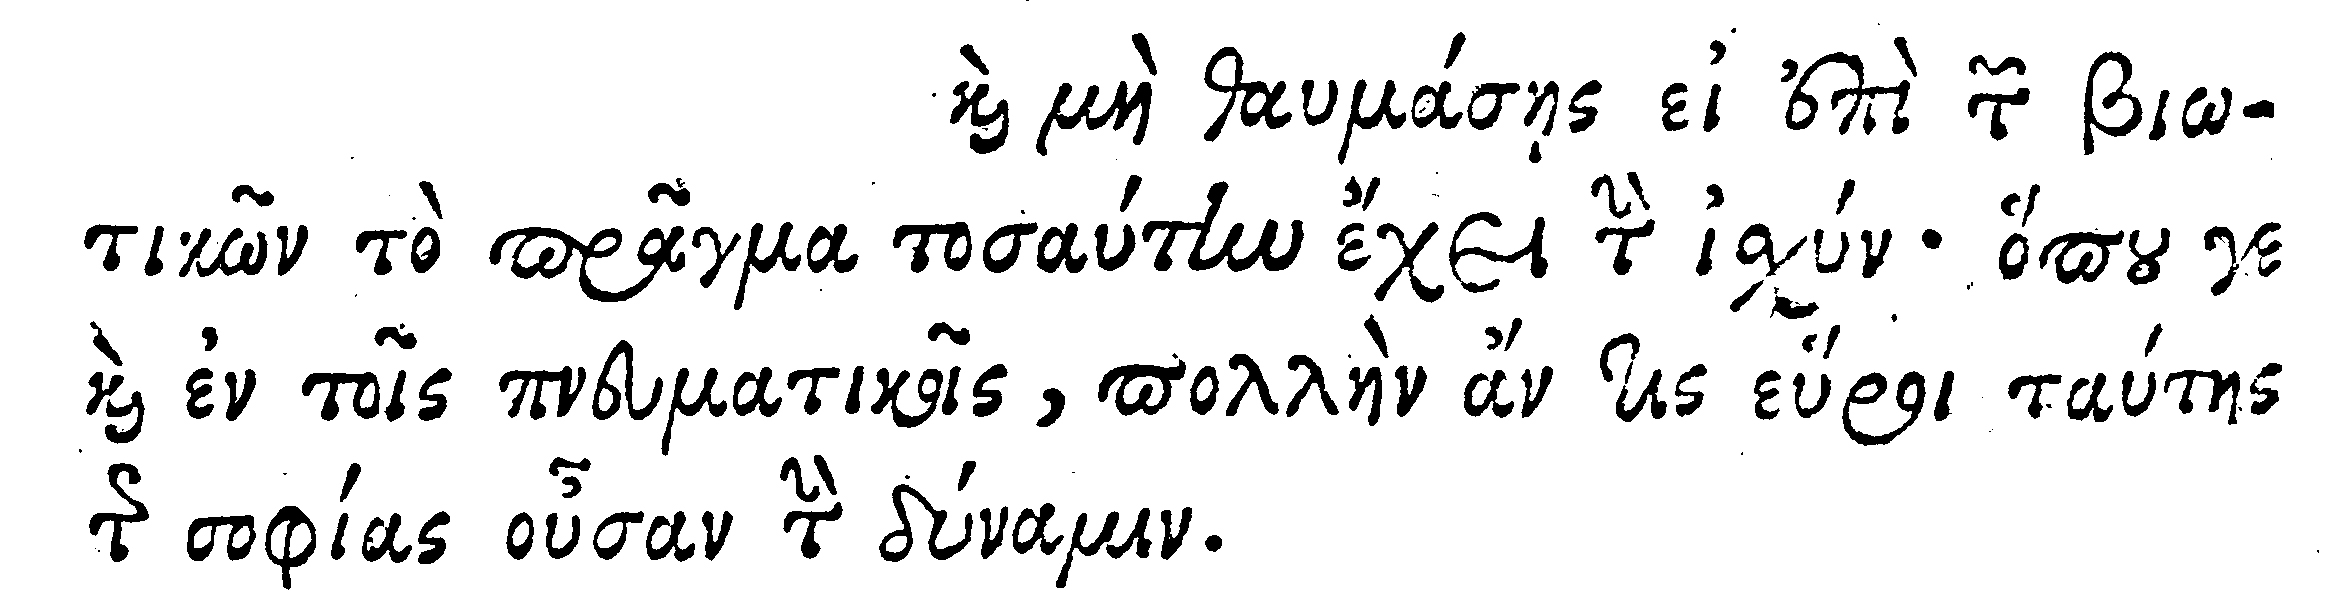 καὶ μὴ θαυμάσῃς εἰ ἐπὶ τῶν βιω-
τικῶν τὸ πρᾶγμα τοσαύτην ἔχει τὴν ἰσχύν· ὅπου γε
καὶ ἐν τοῖς πνευματικοῖς, πολλὴν ἄν τις εὕροι ταύτης
τῆς σοφίας οὖσαν τὴν δύναμιν.